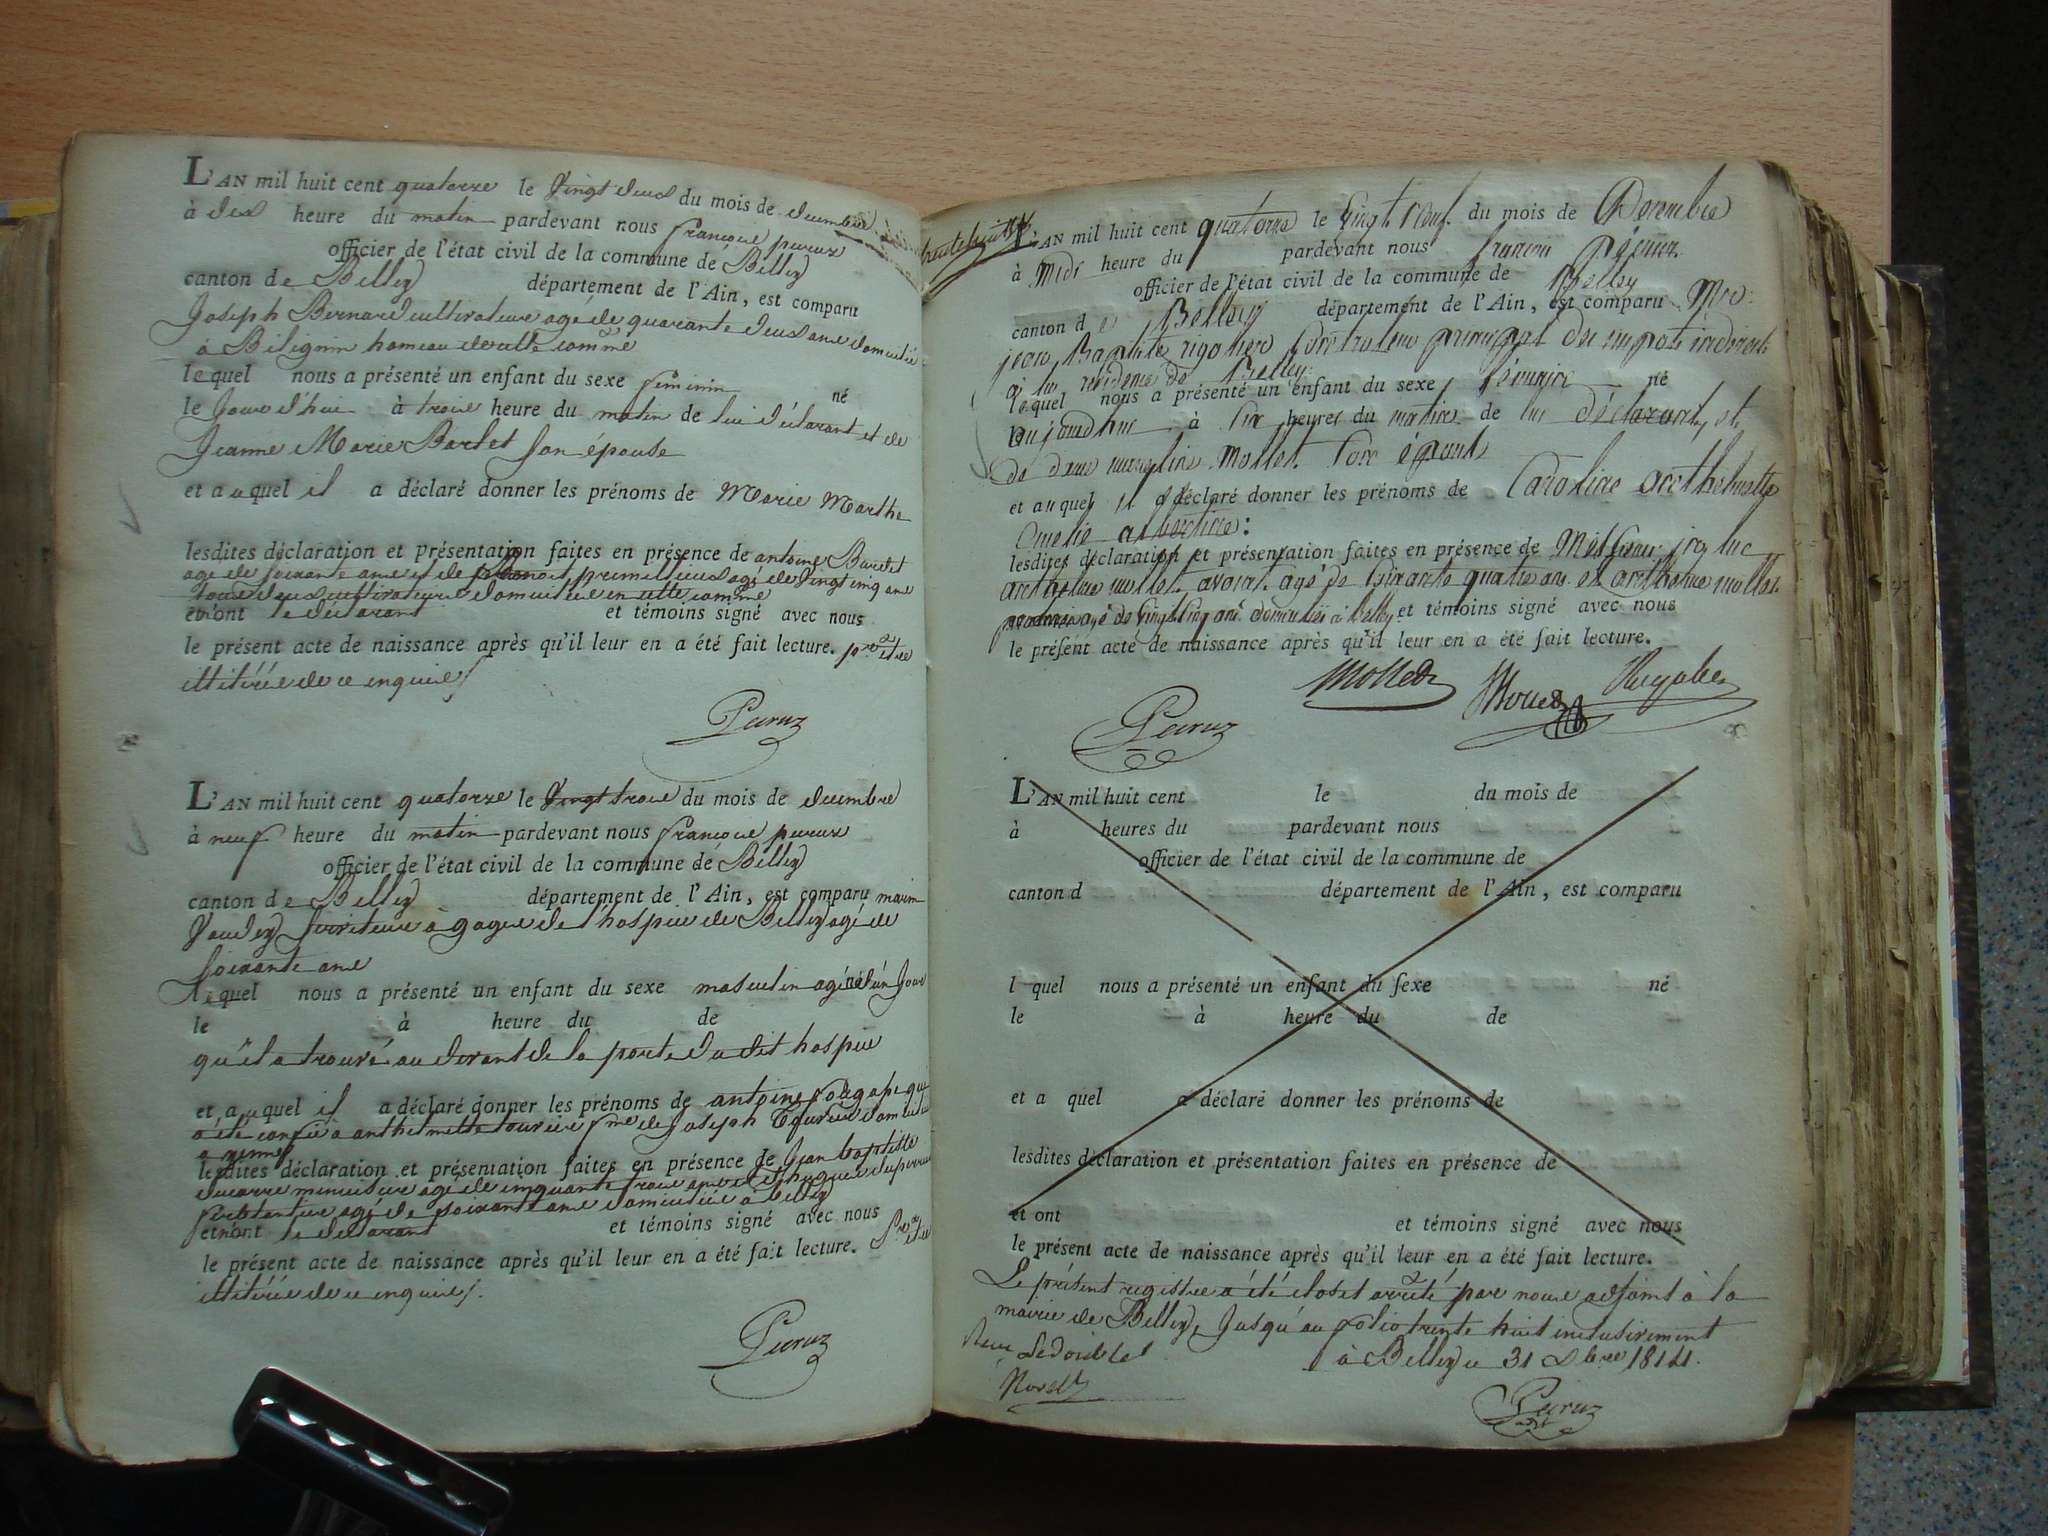 L'AN mil huit cent quatorze le vingt deux du mois de decembre
à dix heure du matin pardevant nous françois peruz
officier de l'état civil de la commune de Belley
canton de Belley département de l'Ain, est comparu
Joseph Bernard cultivateur agé de quarante deux ans domicilié
à Bilignin hameau de cette comme
lequel nous a présenté un enfant du sexe féminin né
le jourd'hui à trois heure du matin de lui déclarant et de
Jeanne Marie Barlet son épouse
et auquel il a déclaré donner les prénoms de Marie Marthe
lesdites déclaration et présentation faites en présence de antoine
agé de soixante ans et de agé de vingt cinq ans
tous deux cultivateurs domiciliés en cette comme
et n'ont le déclarant et témoins signé avec nous
le présent acte de naissance après qu'il leur en a été fait lecture. pour être
illitérés de ce enquis
Peruz
L'AN mil huit cent quatorze le vingt trois du mois de decembre
à neuf heure du matin pardevant nous françois peruz
officier de l'état civil de la commune de Belley
canton de Belley département de l'Ain, est comparu
serviteur à gages de l'hospice de Belley agé de
soixante ans
lequel nous a présenté un enfant du sexe masculin agé d'un jour
le à heure du de
qu'il a trouvé au devant de la porte du dit hospice
et auquel il a déclaré donner les prénoms de antoine agape qui
a été confié à anthelmette fme de Joseph
lesdites déclaration et présentation faites en présence de Jean baptiste
menuisier agé de cinquante trois ans et
agé de soixante ans domiciliés à belley
et n'ont le déclarant et témoins signé avec nous pour être
le présent acte de naissance après qu'il leur en a été fait lecture.
illitérés de ce enquis
Peruz
L'AN mil huit cent quatorze le vingt neuf du mois de Decembre
à Midi heure du pardevant nous françois Péruz
officier de l'état civil de la commune de Belley
canton de Belley département de l'Ain, est comparu Mr
jean Baptiste Controleur principal des impots indirects
à la residence de Belley
lequel nous a présenté un enfant du sexe feminin né
aujourdhui à six heures du matin de lui déclarant, et
de dame Mollet son épouse
et auquel il a déclaré donner les prénoms de Caroline anthelmette
amelie albertine:
lesdites déclaration et présentation faites en présence de Messieurs
anthelme mollet, avocat agé de soixante quatre ans et anthelme mollet
agé de vingt cinq ans domiciliés à belley et témoins signé avec nous
le présent acte de naissance après qu'il leur en a été fait lecture.
Mollet
Peruz
L'AN mil huit cent le du mois de
à heures du pardevant nous
officier de l'état civil de la commune de
canton d département de l'Ain, est comparu
l quel nous a présenté un enfant du sexe né
le à heure du de
et a quel a déclaré donner les prénoms de
lesdites déclaration et présentation faites en présence de
et ont et témoins signé avec nous
le présent acte de naissance après qu'il leur en a été fait lecture.
Le présent registre a été clos et arrêté par nous adjoint à la
mairie de Belley, Jusqu'au folio trente huit inclusivement
à Belley le 31 Xbre 1814.
Peruz
adjt